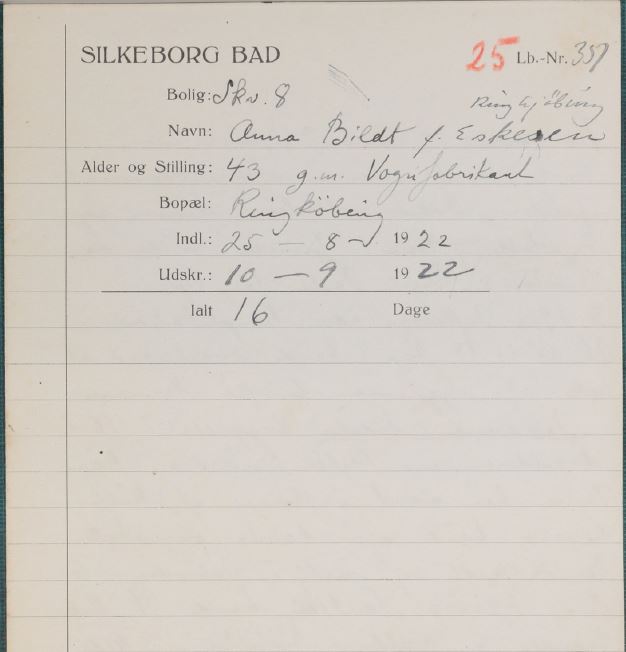 SILKEBORG BAD 25 Lb.-Nr. 357
Bolig: Skv. 8 Ringkjöbing
Navn: Anna Bildt f. Eskesen
Alder og Stilling: 43 g.m. Vognfabrikant
Bopæl: Ringköbing
Indl.: 25 — 8 — 1922
Udskr.: 10 — 9 1922
Ialt 16 Dage